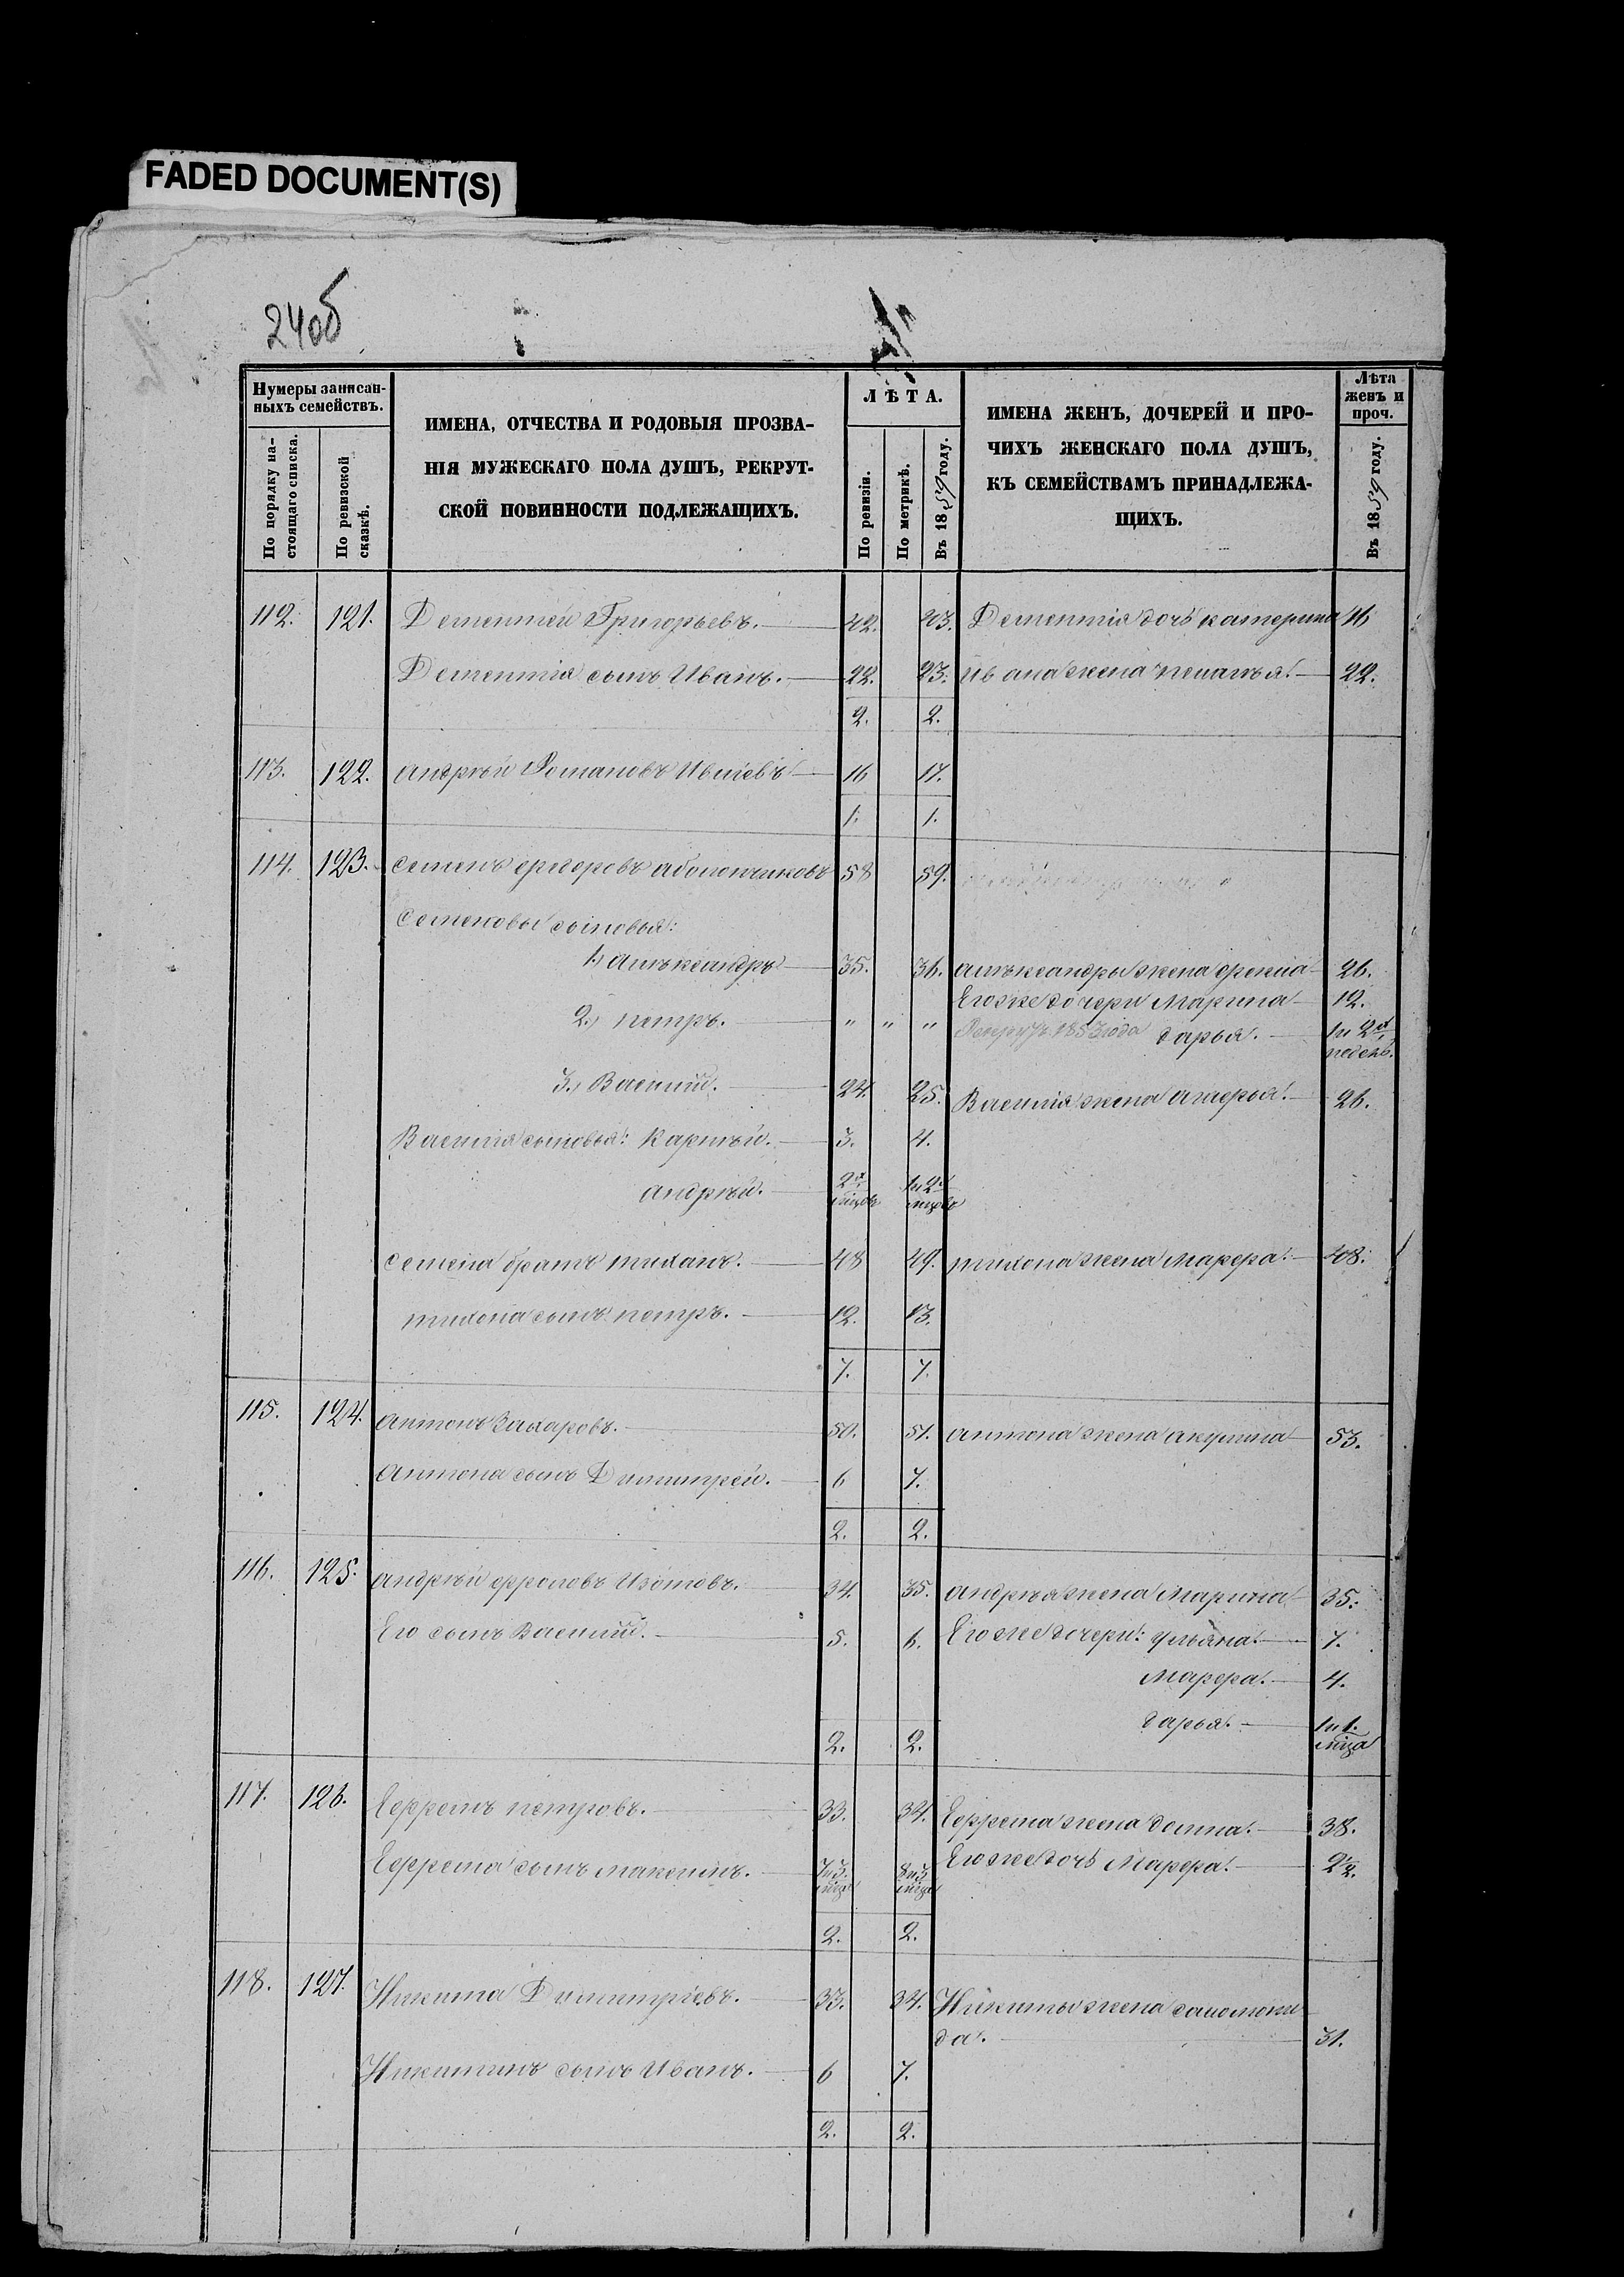 FADED DOCUMENT(S)
240б
Нумеры записан-
ныхъ семействъ.
По порядку на-
стоящаго списка.
По ревизской
сказкѣ.
ИМЕНА, ОТЧЕСТВА И РОДОВЫЯ ПРОЗВА-
НІЯ МУЖЕСКАГО ПОЛА ДУШЪ, РЕКРУТ-
СКОЙ ПОВИННОСТИ ПОДЛЕЖАЩИХЪ.
ЛѢТА.
По ревизіи.
По метрикѣ.
Въ 1859 году.
ИМЕНА ЖЕНЪ, ДОЧЕРЕЙ И ПРО-
ЧИХЪ ЖЕНСКАГО ПОЛА ДУШЪ,
КЪ СЕМЕЙСТВАМЪ ПРИНАДЛЕЖА-
ЩИХЪ.
Лѣта
женъ и
проч.
Въ 1859 году.
112. 121. Дементей Григорьевъ. 42. 43. Дементія дочь катерина 16
Дементія сынъ Иванъ. 22. 23. ивана жена 22.
2. 2.
113. 122. андрѣй Романовъ 16 17.
1. 1.
114. 123. семенъ фёдоровъ 58 59.
Семеновы сыновья:
1.) алѣксандръ 35. 36. алѣксандры жена фекла 26.
Его же дочери Марина 12.
2.) петръ. " " " 1853 года дарья. 1 и 2хъ
недель.
3.) Василий. 24. 25. Василія жена 26.
Василія сыновья: Карпѣй. 3. 4.
андрѣй. 2хъ 1 и 2хъ
мѣцовъ мѣцовъ
семена братъ тиханъ. 48 49. тихона жена Марфа. 48.
тихона сынъ петръ. 12. 13.
7. 7.
115. 124. антонъ Захаровъ. 50. 51. антона жена акулина 53.
антона сынъ Димитрей. 6 7.
2. 2.
116. 125. андрѣй фроловъ Изотовъ. 34. 35. андрѣя жена Марина 35.
Его сынъ Василий. 5. 6. Его же дочери: ульяна. 7.
Марфа. 4.
дарья. 1 и 1.
мѣца
2. 2.
117. 126. Ефремъ петровъ. 33. 34. Ефрема жена домна. 38.
Ефрема сынъ максимъ. 7 и 3. 8 и 3 Его же дочь Марфа. 2 1/2.
мѣца мѣца
2. 2.
118. 127. Никита Димитріевъ. 33. 34. Никиты жена
да. 31.
Никитинъ сынъ Иванъ. 6 7.
2. 2.